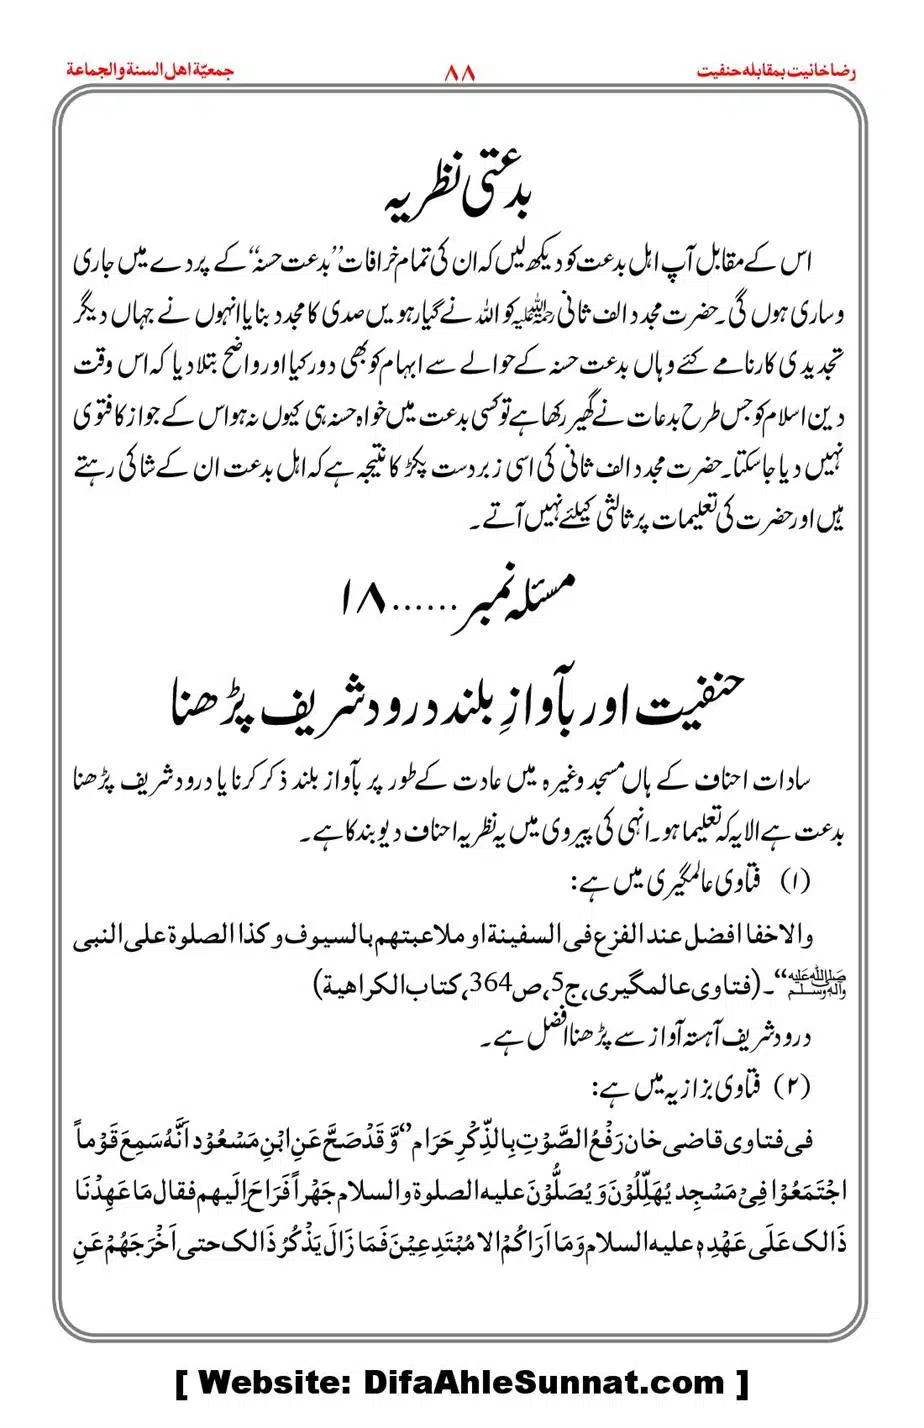 رضاخانیت بمقابلہ حنفیت
۸۸
جمعیّة اهل السنة والجماعة
بدعتی نظریہ
اس کے مقابل آپ اہل بدعت کو دیکھ لیں کہ ان کی تمام خرافات ’’بدعت حسنہ‘‘ کے پردے میں جاری
وساری ہوں گی۔حضرت مجدد الف ثانی رحمہ اللہ کو اللہ نے گیارہویں صدی کا مجدد بنایا انہوں نے جہاں دیگر
تجدیدی کارنامے کئے وہاں بدعت حسنہ کے حوالے سے ابہام کو بھی دور کیا اور واضح بتلادیا کہ اس وقت
دین اسلام کو جس طرح بدعات نے گھیر رکھا ہے تو کسی بدعت میں خواہ حسنہ ہی کیوں نہ ہو اس کے جواز کا فتوی
نہیں دیا جاسکتا۔حضرت مجدد الف ثانی کی اسی زبردست پکڑ کا نتیجہ ہے کہ اہل بدعت ان کے شاکی رہتے
ہیں اور حضرت کی تعلیمات پر ثالثی کیلئے نہیں آتے۔
مسئلہ نمبر......۱۸
حنفیت اور بآوازِ بلند درود شریف پڑھنا
سادات احناف کے ہاں مسجد وغیرہ میں عادت کے طور پر بآواز بلند ذکر کرنا یا درود شریف پڑھنا
بدعت ہے الا یہ کہ تعلیما ہو۔انہی کی پیروی میں یہ نظریہ احناف دیوبند کا ہے۔
(۱) فتاوی عالمگیری میں ہے:
والاخفا افضل عند الفزع فی السفینة او ملاعبتهم بالسیوف و کذا الصلوة علی النبی
ﷺ‘‘۔(فتاوی عالمگیری،ج5،ص364،کتاب الکراهیة)
درود شریف آہستہ آواز سے پڑھنا افضل ہے۔
(۲) فتاوی بزازیہ میں ہے:
فی فتاوی قاضی خان رَفْعُ الصَّوْتِ بِالذِّكْرِ حَرَام’’ وَّقَدْ صَحَّ عَنِ ابْنِ مَسْعُوْد اَنَّهُ سَمِعَ قَوْماً
اجْتَمَعُوْا فِیْ مَسْجِد یُهَلِّلُوْنَ وَ یُصَلُّوْنَ علیه الصلوة والسلام جَهْراً فَرَاحَ اِلَیهم فقال مَا عَهِدْنَا
ذَالک عَلَی عَهْدِهٖ علیه السلام وَمَا اَرَاکُمْ الا مُبْتَدِعِیْنَ فَمَا زَالَ یَذْکُرُ ذَالک حتی اَخْرَجَهُمْ عَنِ
[ Website: DifaAhleSunnat.com ]